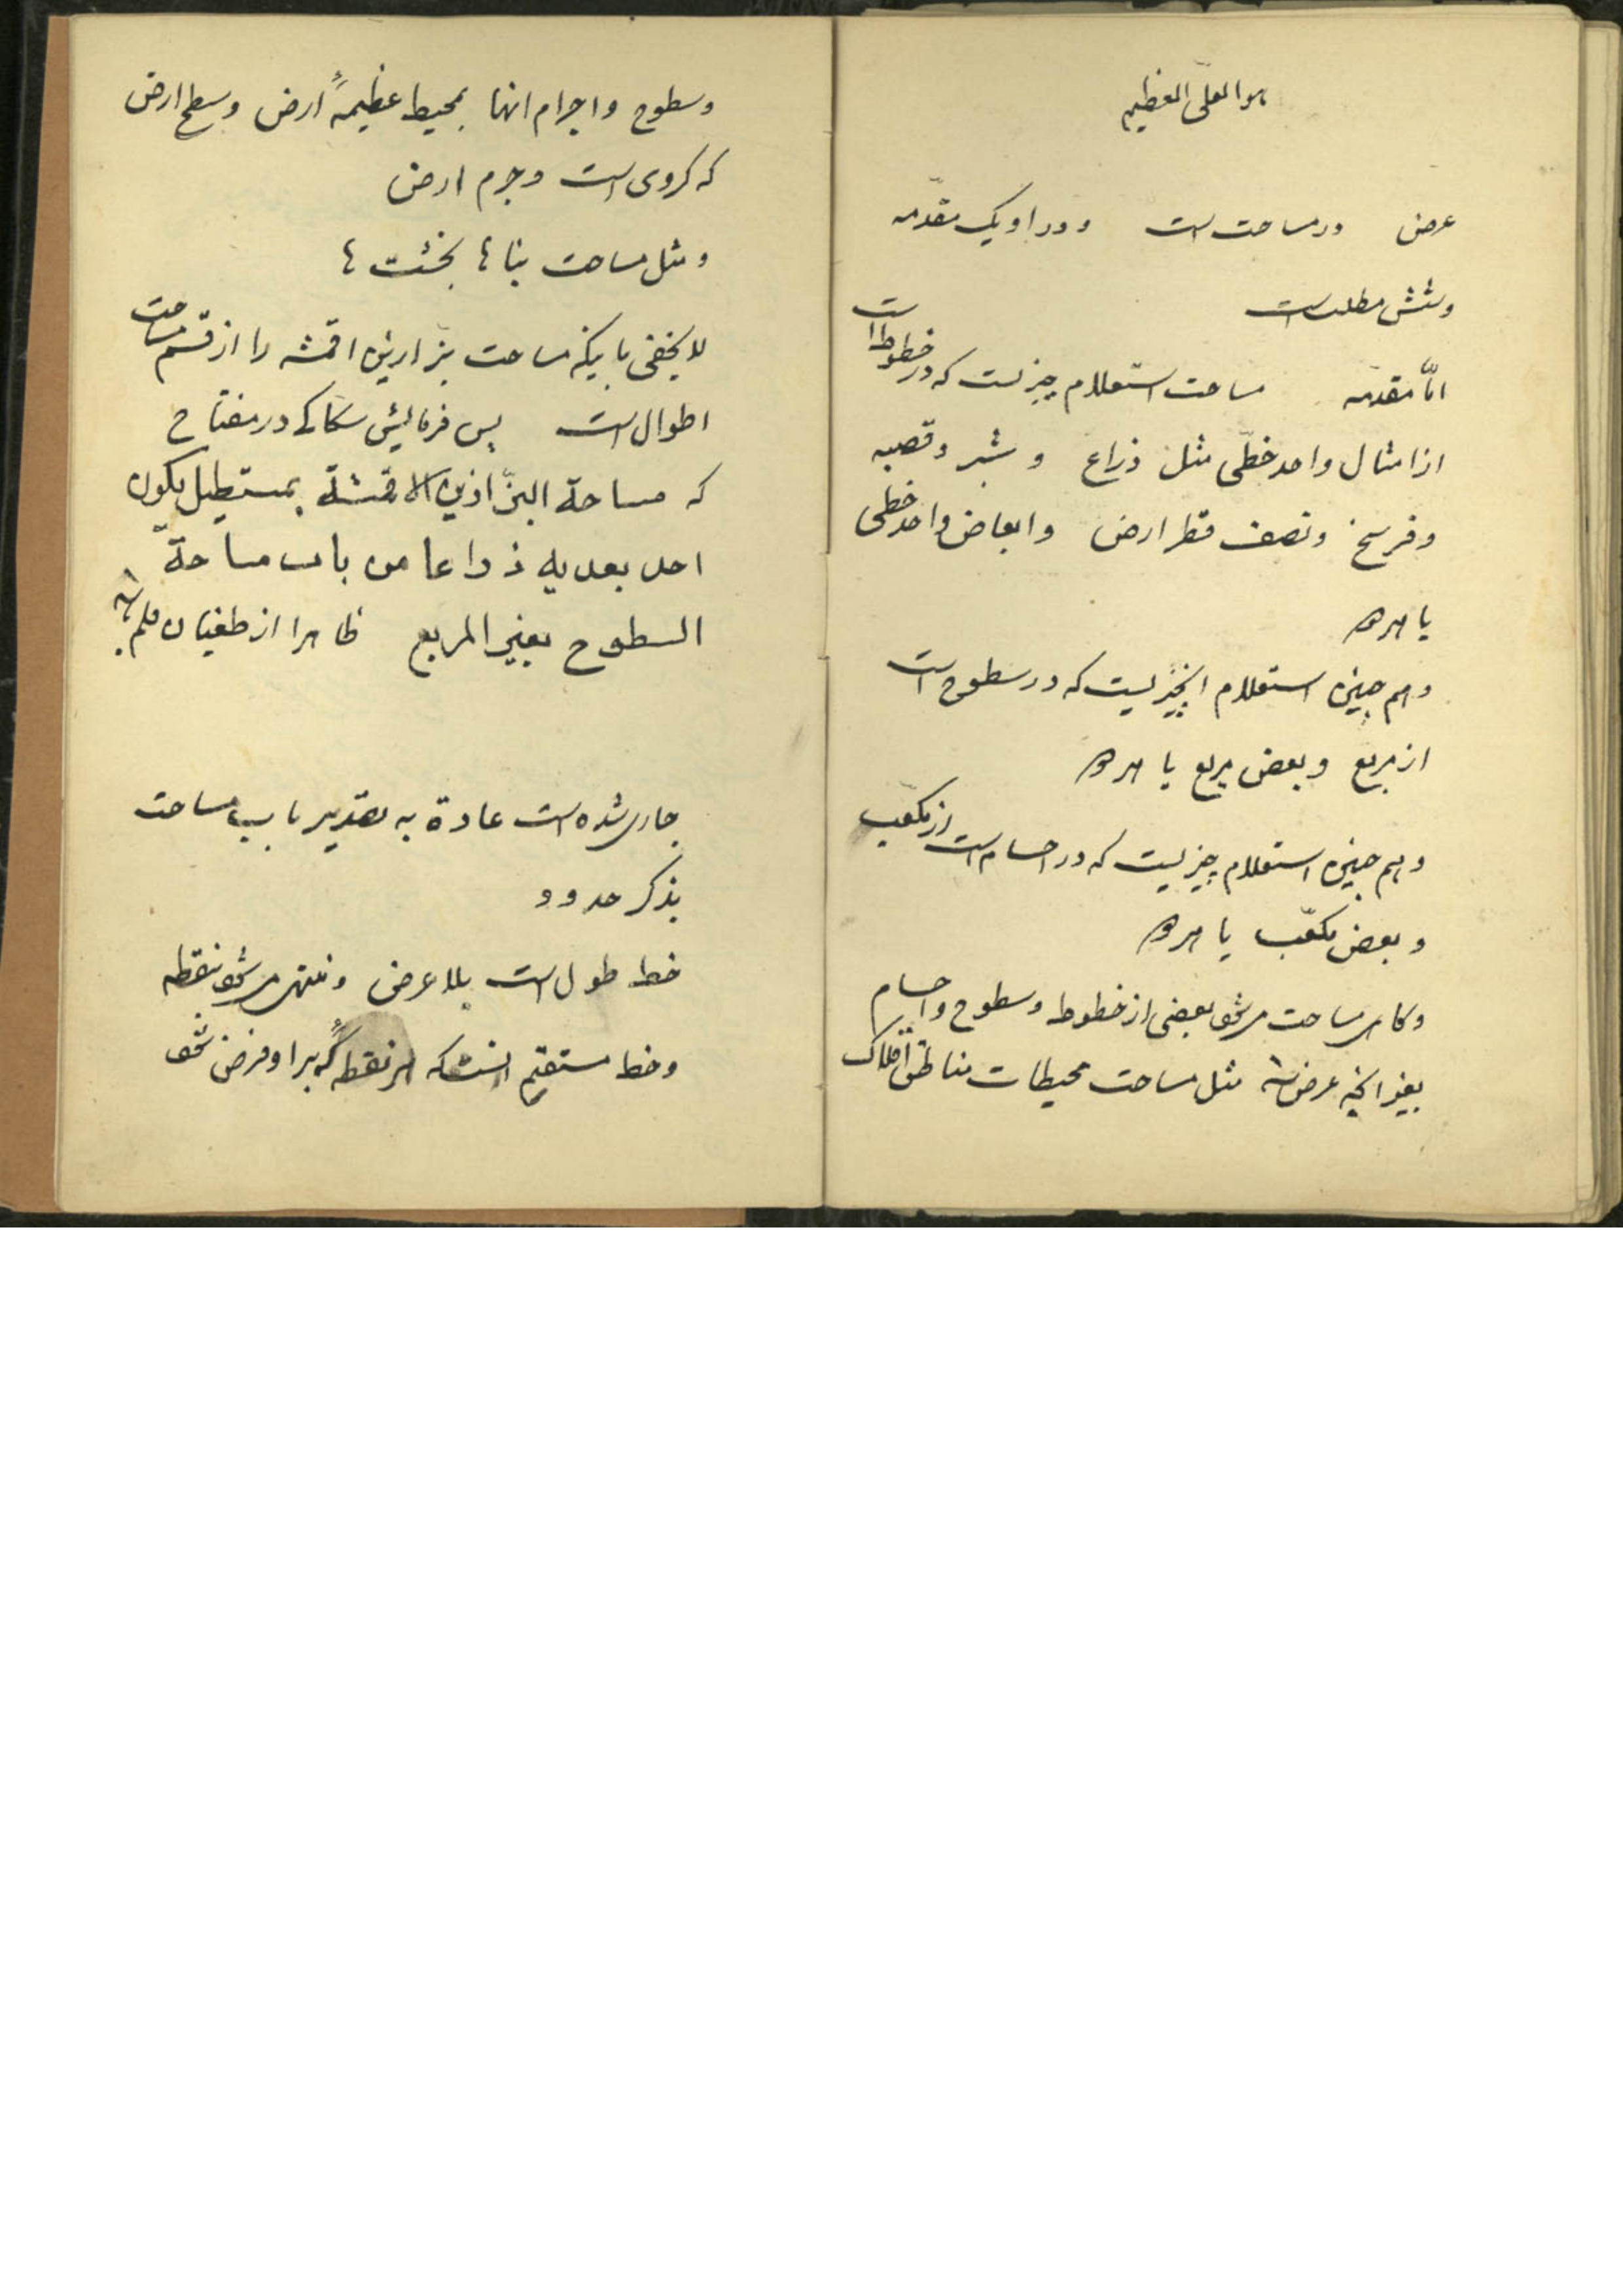 هو العلی العظیم
عرض در مساحت است و در او یک مقدّمه
و شش مطلب است
امّا مقدمه مساحت استعلام چیزیست که در خطوط است
از امثال واحد خطّی مثل ذراع و شبر و قصبه
و فرسخ و نصف قطر ارض و ابعاض واحد خطی
یا هر دو
و هم چنین استعلام انچیزیست که در سطوح است
از مربع و بعض مربع یا هر دو
و هم چنین استعلام چیزیست که در اجسام است از مکعّب
و بعض مکعّب یا هر دو
و گاهی مساحت میشود بعضی از خطوط و سطوح و اجسام
بغیر انچه عرض شد مثل مساحت محیطات مناطق افلاک
و سطوح و اجرام انها بمحیط عظیمهٔ ارض و سطح ارض
که کروی است و جرم ارض
و مثل مساحت بناها بخشت ها
لا یخفی باینکه مساحت بزازین اقمشه را از قسم مساحت
اطوال است پس فرمایش سکاکی در مفتاح
که مساحة البزّازین الاقمشة بمستطیل یکون
احد بعدیه ذراعا من باب مساحة
السطوح بعین المربع ظاهرا از طغیان قلم
جاری شده است عادة به تقدیر باب مساحت
بذکر حدود
خط طول است بلا عرض و منتهی میشود بنقطه
و خط مستقیم انست که هر نقطهٔ که بر او فرض شود